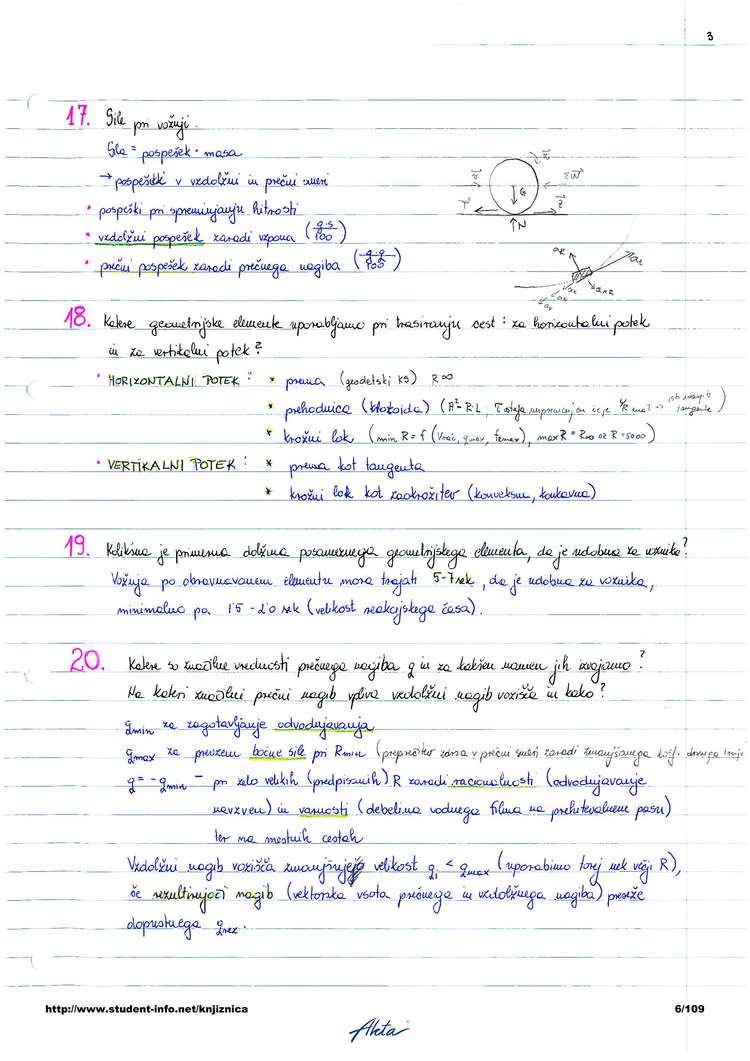 3
17. Sile pri vožnji.
Sila = pospešek · masa
→ pospeški v vzdolžni in prečni smeri
• pospeški pri spreminjanju hitrosti
• vzdolžni pospešek zaradi vzpona (g·s/100)
• prečni pospešek zaradi prečnega nagiba (g·q/100)
G
N
18. Katere geometrijske elemente uporabljamo pri trasiranju cest: za horizontalni potek
in za vertikalni potek?
• HORIZONTALNI POTEK: * prema (geodetski KS) R∞
* prehodnica (klotoida) (A²=R·L,
* krožni lok (min R = f (Vrač, qmax, fRmax), max R = R∞ oz R=5000)
• VERTIKALNI POTEK: * prema kot tangenta
* krožni lok kot zaokrožitev (konveksna, konkavna)
19. Kolikšna je primerna dolžina posameznega geometrijskega elementa, da je udobna za voznika?
Vožnja po obravnavanem elementu mora trajati 5-7 sek, da je udobna za voznika,
minimalno pa 1.5 - 2.0 sek (velikost reakcijskega časa).
20. Katere so značilne vrednosti prečnega nagiba q in za kakšen namen jih izvajamo?
Na kateri značilni prečni nagib vpliva vzdolžni nagib vozišča in kako?
qmin za zagotavljanje odvodnjavanja
qmax za prevzem bočne sile pri Rmin (preprečitev zdrsa v prečni smeri zaradi zmanjšanega koef. drsnega trenja
q = -qmin - pri zelo velikih (predpisanih) R zaradi racionalnosti (odvodnjavanje
navzven) in varnosti (debelina vodnega filma na prehitevalnem pasu)
ter na mestnih cestah
Vzdolžni nagib vozišča zmanjšuje velikost qi < qmax (uporabimo torej nek večji R),
če rezultirajoči nagib (vektorska vsota prečnega in vzdolžnega nagiba) preseže
dopustnega qrez.
http://www.student-info.net/knjiznica
6/109
Akta